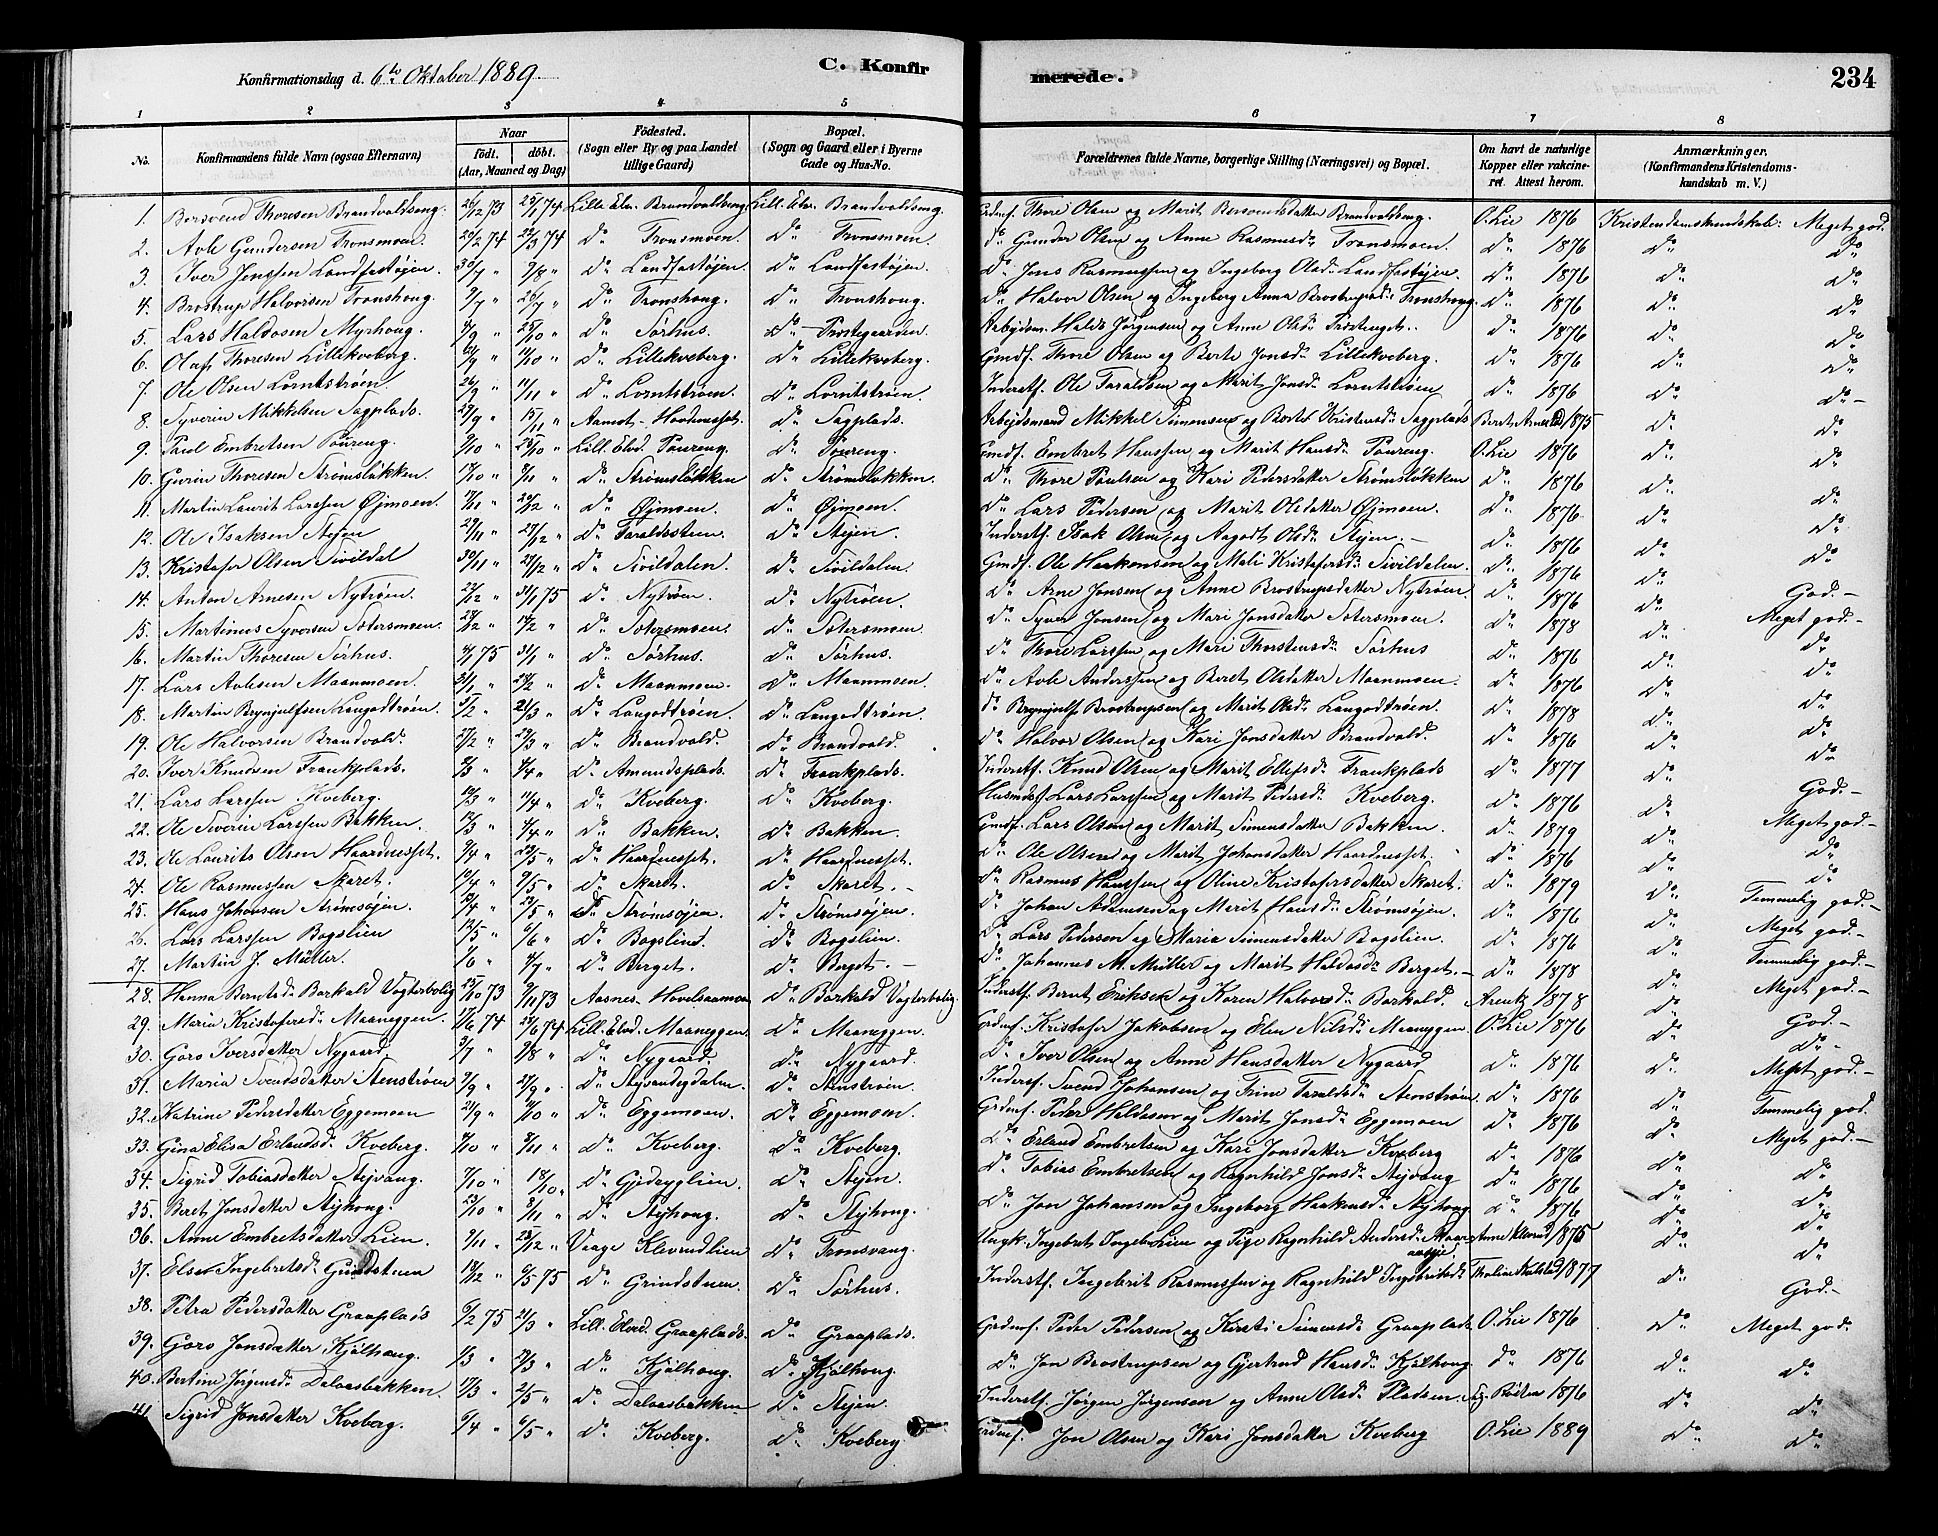 Konfirmationsdag d. 6te Oktober 1889.
C. Konfirmerede.
234
1 2 3 4 5 6 7 8
No. Konfirmandens fulde Navn (ogsaa Efternavn) Naar födt. döbt. (Aar, Maaned og Dag) Födested. (Sogn eller By og paa Landet tillige Gaard) Bopæl. (Sogn og Gaard eller i Byerne Gade og Hus-No. Forældrenes fulde Navne, borgerlige Stilling (Næringsvei) og Bopæl. Om havt de naturlige Kopper eller vakcineret. Attest herom. Anmærkninger. (Konfirmandens Kristendomskundskab m. V.)
1. Bersvend Thoresen Brandvoldseng. 26/12 73 25/1 74 Lille Elv. Brandvoldseng Lill. Elv. Brandvoldseng Grdmf. Thore Olsen og Marit Bersvendsdatter Brandvoldseng. O. Lie 1876 Kristendomskundskab: Meget god.
2. Avle Gundersen Tronsmoen. 74 74 do Tronsmoen. do Tronsmoen. do Gunder Olsen og Anne Rasmusdr Tronsmoen. do 1876 do do
3. Iver Jonssen Landfastøjen. 30/7 " 9/8 " do Landfastøjen do Landfastøjen. do Jons Rasmussen og Ingeborg Olsdr Landfastøjen. do 1876 do do
4. Brostrup Halvorsen Tronshoug. 9/7 " 26/7 " do Tronshoug. do Tronshoug. do Halvor Olsen og Ingeborg Anna Brostrupsdr Tronshoug. do 1876 do do
5. Lars Haldosen Myrhoug. 4/9 " 25/10 " do Sørhus. do Prestegaarden. Arbejdsm. Haldo Jørgensen og Anne Olsdr do 1876 do do
6. Olaf Thoresen Lillekveberg. /9 " /10 " do Lillekveberg. do Lillekveberg. Gmdf. Thore Olsen og Berte Jonsdr Lillekveberg. do 1876 do do
7. Ole Olsen Lorntstrøen. 26/9 " 11/11 " do Lorntstrøen. do Lorntstrøen. Inderstf. Ole Taraldsen og Marit Jonsdr Lorntstrøen do 1876 do do
8. Syverin Mikkelsen Sagplads. 29/9 " 15/11 " Aamot- do Sagplads. Arbejdsmand Mikkel Simensen og Berte Kristensdr Sagplads 1875 do do
9. Paul Embretsen Poureng. 9/10 " 25/10 " Lill. Elvd. Poureng. do Poureng. Gmdf. Embret Hanssen og Marit Hansdr Poureng. O. Lie 1876 do do
10. Gurin Thoresen Strømsløkken. 17/10 " 8/11 " do Strømsløkken do Strømsløkken. do Thore Poulsen og Kari Pedersdatter Strømsløkken do 1876 do do
11. Martin Laurit Larssen Øjmoen. /11 " 20/12 " do Øjmoen. do Øjmoen. do Lars Pedersen og Marit Olsdatter Øjmoen. do 1876 do do
12. Ole Isaksen Stejen 29/11 " 27/12 " do Taraldsstuen. do Stejen. Inderstf. Isak Olsen og Aagodt Olsdr Stejen.- do 1876 do do
13. Kristofer Olsen Sivildal 30/11 " 27/12 " do Sivildalen. do Sivildalen. Gmdf. Ole Haakensen og Mali Kristofersdr Sivildalen. do 1876 do do
14. Anton Arnesen Nytrøen. 22/12 " 31/1 75 do Nytrøen. do Nytrøen. do Arne Jonsen og Anne Brostrupsdatter Nytrøen. do 1876 do God.-
15. Martinus Syversen Sotersmoen. 28/12 " 14/2 " do Sotersmoen. do Sotersmoen. do Syver Jonsen og Mari Jonsdatter Sotersmoen. do 1878 do Meget god.-
16. Martin Thoresen Sørhus. 4/1 75 31/1 " do Sørhus. do Sørhus. do Thore Larssen og Mari Thorstensdr Sørhus do 1876 do do
17. Lars Avlesen Maanmoen. 31/1 " 28/2 " do Maanmoen. do Maanmoen. do Avle Anderssen og Beret Olsdatter Maanmoen. do 1876 do do
18. Martin Brynjulfsen Langodtrøen. 5/2 " 21/3 " do Langodtrøen. do Langodtrøen. do Brynjulf Brostrupsen og Marit Olsdr Langodtrøen. do 1878 do do
19. Ole Halvorsen Brandvold. 27/2 " 29/3 " do Brandvold. do Brandvold. do Halvor Olsen og Kari Jonsdatter Brandvold. do 1876 do do
20. Iver Knudsen Frankplads. 8/3 " 4/4 " do Amundsplads. do Frankplads. Inderstf. Knud Olsen og Marit Ellefsdr Frankplads do 1877 do do
21. Lars Larssen Kveberg. 10/3 " 11/4 " do Kveberg. do Kveberg. Husmdsf. Lars Larssen og Marit Pedersdr Kveberg. do 1876 do God.-
22. Ole Siverin Larssen Bakken. 12/3 " 4/4 " do Bakken. do Bakken. Gmdf. Lars Olsen og Marit Simensdatter Bakken. do 1879 do Meget god.-
23. Ole Laurits Olsen Haardnesset. 9/4 " 22/5 " do Haardnesset. do Haardnesset. do Ole Olsen og Marit Johansdatter Haardnesset. do 1876 do do
24. Ole Rasmussen Skaret. 10/4 " 9/5 " do Skaret. do Skaret. - do Rasmus Hanssen og Oline Kristofersdatter Skaret. do 1879 do do
25. Hans Johansen Strømsøjen. /4 " /5 " do Strømsøjen. do Strømsøjen. do Johan Adamsen og Marit Hansdr Strømsøjen. do 1876 do Temmelig god.-
26. Lars Larssen Bogslien 12/5 " 6/6 " do Bogslien. do Bogslien. do Lars Pedersen og Maria Simensdatter Bogslien. do 1876 do Meget god.-
27. Martin J. Müller. 1/6 " 4/7 " do Berget. do Berget. - do Johannes M. Müller og Marit Haldosdr Berget.- do 1878 do Temmelig god.-
28. Hanna Berntsdr Barkald Vogterbolig 25/10 73 9/11 73 Aasnes- Hovelsaamoen do Barkald Vogterbolig. Inderstf. Bernt Eriksen og Karen Halvorsdr Barkald. Arentz 1878 do Meget god.-
29. Maria Kristofersdr Maaneggen. 17/6 74 25/6 74 Lill. Elvd. Maaneggen do Maaneggen. Grdmf. Kristofer Jakobsen og Elen Nilsdr Maaneggen. O. Lie 1876 do God.-
30. Goro Iversdatter Nygaard 3/7 " 9/8 " do Nygaard. do Nygaard. do Iver Olsen og Anne Hansdatter Nygaard do 1876 do do-
31. Maria Svendsdatter Stenstrøen 9/9 " 27/9 " do do Stenstrøen. Inderstf. Svend Johansen og Trine Taraldsdr Stenstrøen do 1876 do Meget god.-
32. Katrine Pedersdatter Eggemoen 21/9 " /10 " do Eggemoen. do Eggemoen. Grdmf. Peder Haldosen og Marit Jonsdr Eggemoen do 1876 do Temmelig god.
33. Gina Elisa Erlandsdr Kveberg. 9/10 " 8/11 " do Kveberg. do Kveberg. do Erland Embretsen og Kari Jonsdatter Kveberg do 1876 do Meget god.-
34. Sigrid Tobiasdatter Stejvang. 7/10 " 18/10 " do Gjedryglien. do Stejen. do Tobias Embretsen og Ragnhild Jonsdr Stejvang do 1876 do do
35. Beret Jonsdatter Stejhoug. 23/10 " 8/11 " do Stejhoug. do Stejhoug. do Jon Johansen og Ingeborg Haakensdr Stejhoug do 1876 do do
36. Anne Embretsdatter Lien. 9/11 " 28/12 " Vaage Klevrudlien do Tronsvang. Ungk. Ingebret Lien og Pige Ragnhild Andersdr 1875 do do
37. Else Ingebretsdr Grindstuen 18/12 " 6/5 75 do Grindstuen. do Sørhus. Inderstf. Ingebrit Rasmussen og Ragnhild Ingebretsdr 1877 do do
38. Petra Pedersdatter Graaplads 6/2 75 21/3 " Lill. Elvd. Graaplads. do Graaplads. Grdmf. Peder Pedersen og Kirsti Simensdr Graaplads O. Lie 1876 do God.-
39. Goro Jonsdatter Kjølhoug. 1/3 " 29/3 " do Kjølhoug. do Kjølhoug. do Jon Brostrupsen og Gjertrud Hansdr Kjølhoug. do 1876 do Meget god.
40. Bertine Jørgensdr Dalaasbakken. 17/3 " 2/5 " do Dalaasbakken do Stejen. Inderstf. Jørgen Jørgensen og Anne Olsdr Pladsen. 1876 do do
41. Sigrid Jonsdatter Kveberg. 6/4 " 6/5 " do Kveberg. do Kveberg Grdmf. Jon Olsen og Kari Jonsdatter Kveberg O. Lie 1889 do do